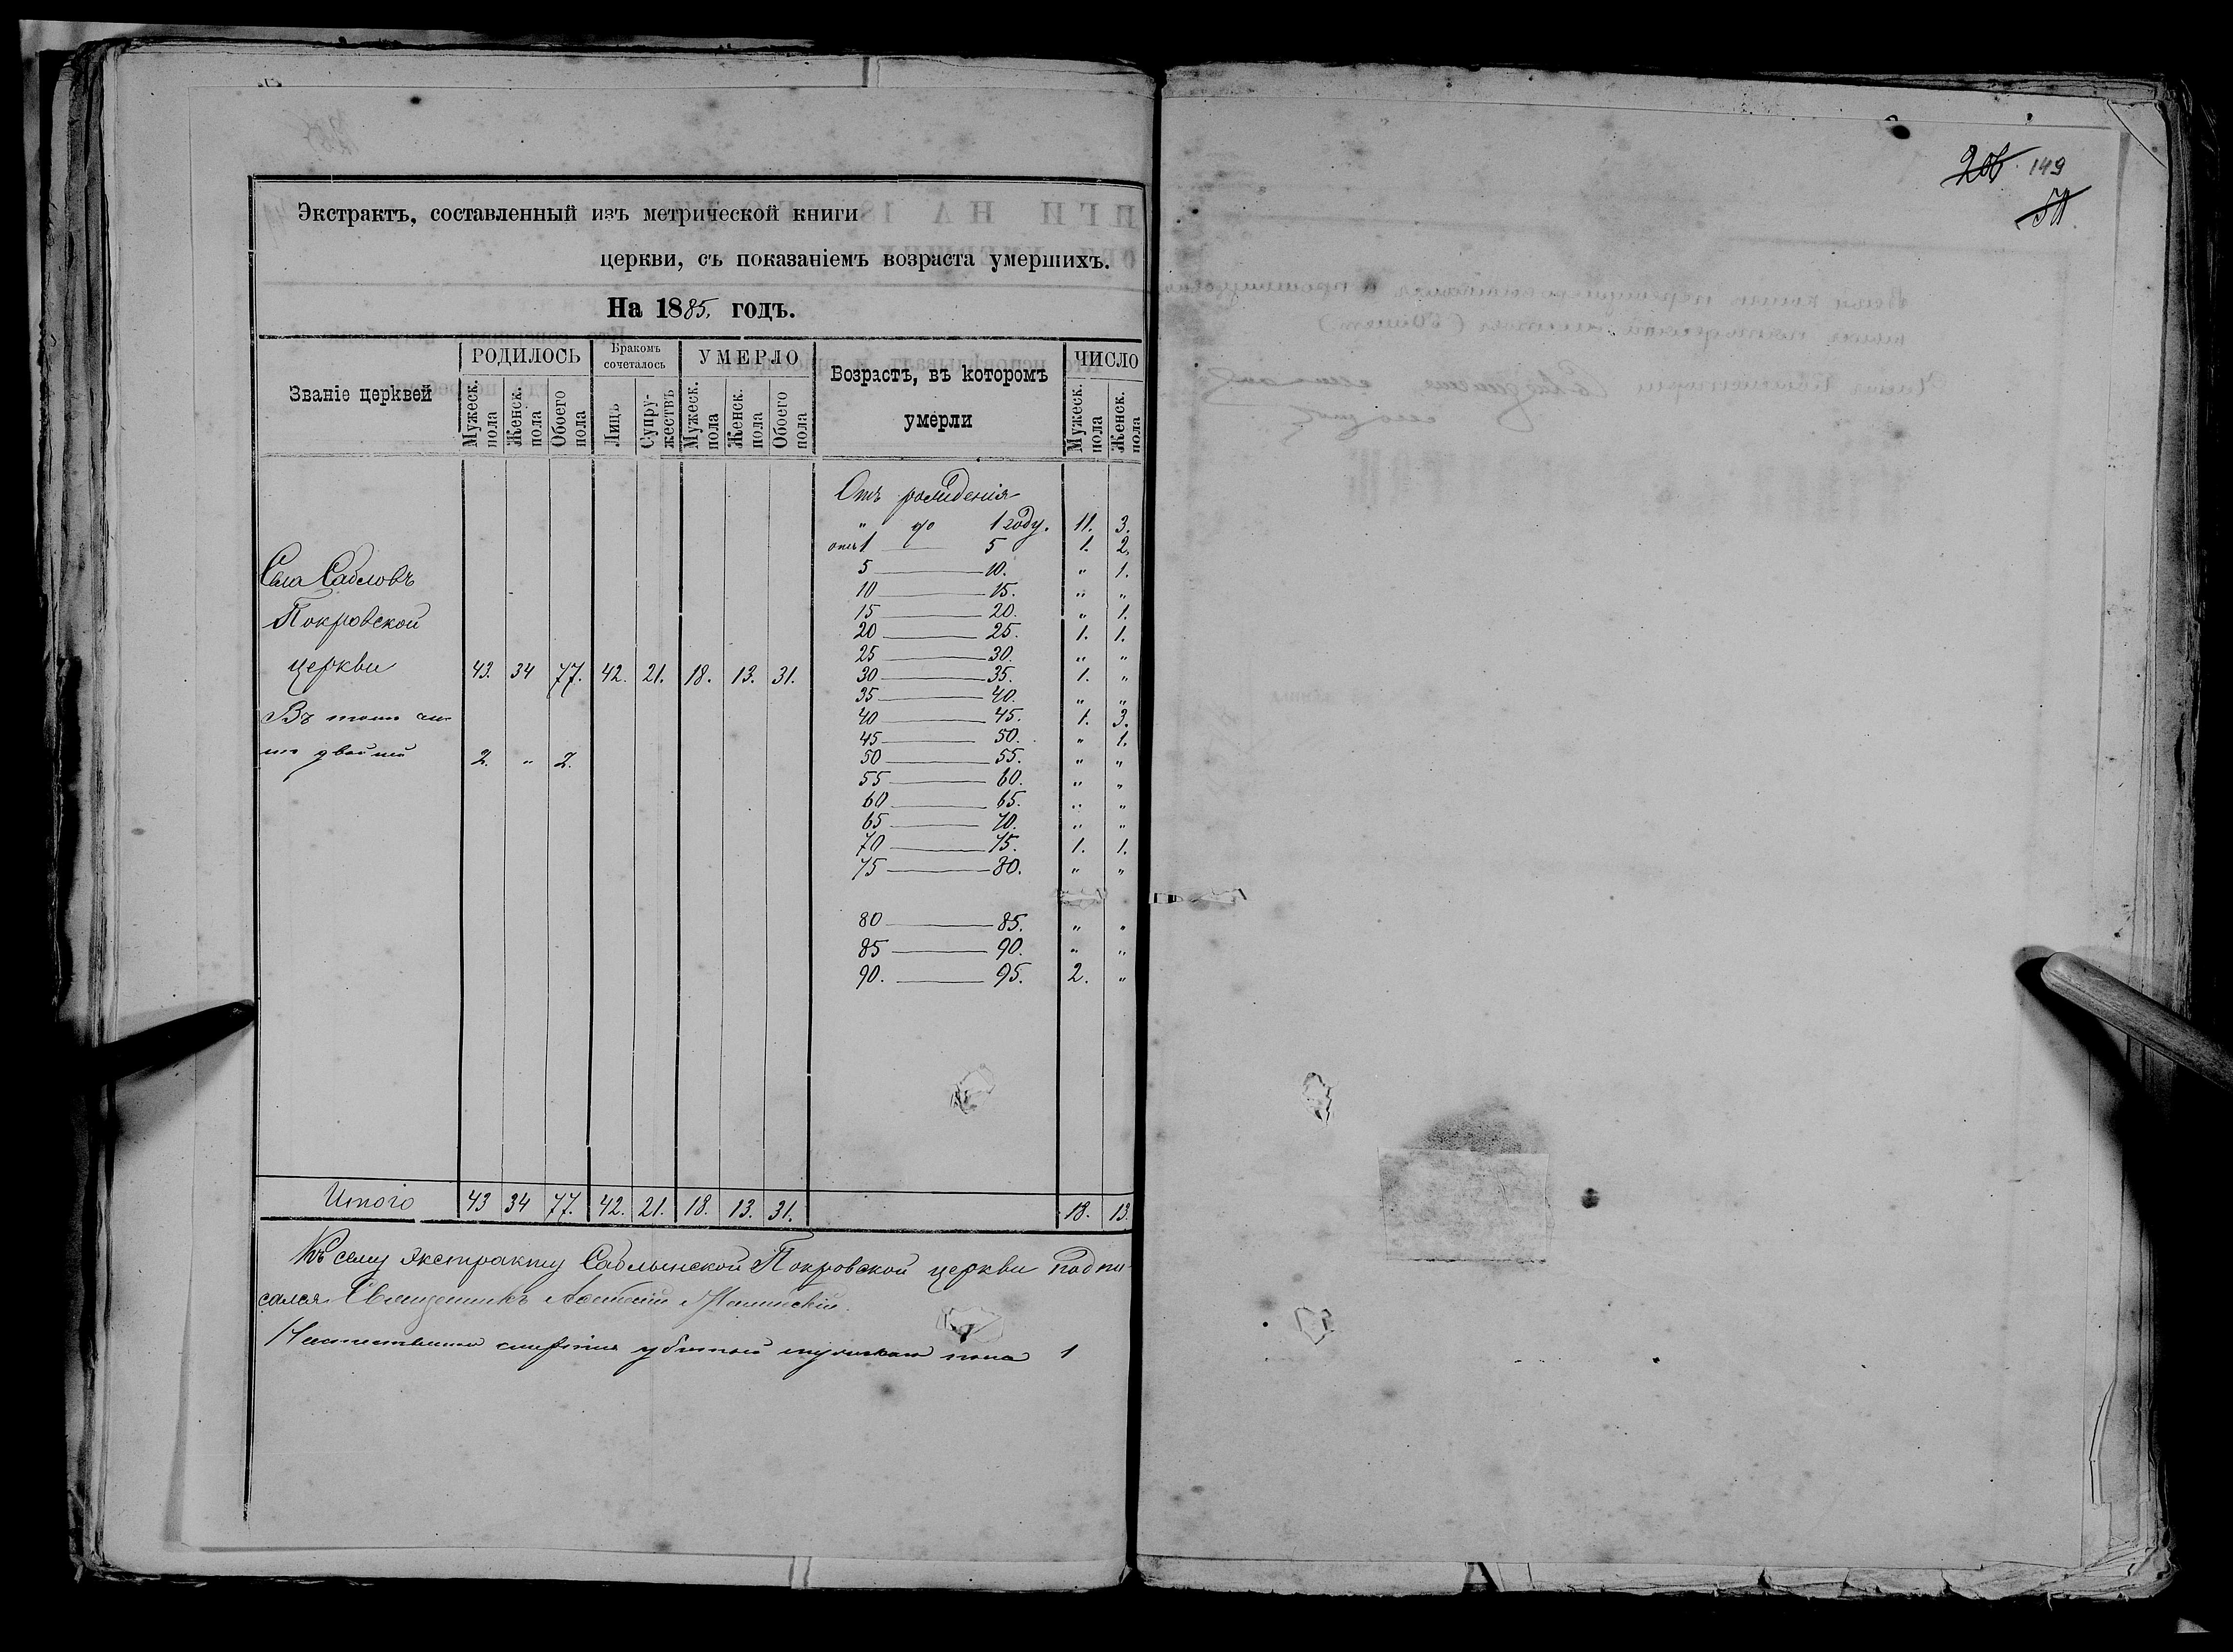 Экстрактъ, составленный изъ метрической книги
церкви, съ показаніемъ возраста умершихъ.
На 1885 годъ.
Званіе церквей
РОДИЛОСЬ
Бракомъ сочеталось
УМЕРЛО
Возрастъ, въ которомъ умерли
ЧИСЛО
Мужеск. пола
Женск. пола
Обоего пола
Лицъ
Супружествъ
Мужеск. пола
Женск. пола
Обоего пола
Мужеск. пола
Женск. пола
Отъ рожденія
" до 1 году. 11. 3.
отъ 1 — 5 1. 2.
5 — 10. " 1.
10 — 15. " "
15 — 20. " 1.
20 — 25. 1. 1.
25 — 30. " "
30 — 35. 1. "
35 — 40. " "
40 — 45. 1. 3.
45 — 50. " 1.
50 — 55. " "
55 — 60. " "
60 — 65. " "
65 — 70. " "
70 — 75. 1. 1.
75 — 80. " "
80 — 85. " "
85 — 90. " "
90. — 95. 2. "
Села Сабловъ
Покровской
церкви 43. 34 77. 42. 21. 18. 13. 31.
Въ томъ чи-
слѣ двойней 2. " 2.
Итого 43 34 77. 42. 21. 18. 13. 31. 18. 13.
Къ сему экстракту Саблынской Покровской церкви подпи-
сался Священникъ
смертію убитый мужескаго пола 1
206 149
50